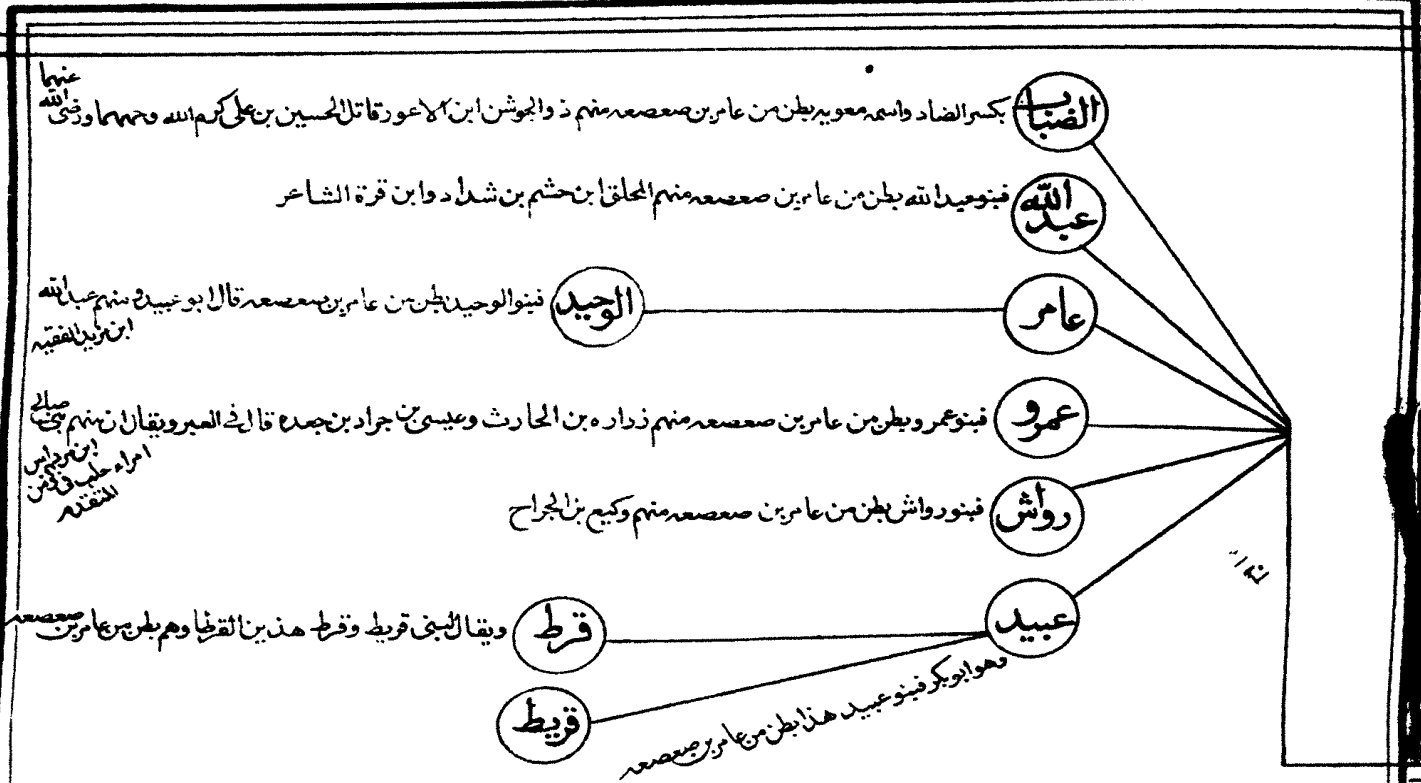 الضباب
بكسر الضاد واسمه معويه بطن من عامر بن صعصعه منهم ذو الجوشن ابن الاعور قاتل الحسين بن على كرم الله وجههما ورضى الله عنهما
عبد الله
فبنو عبد الله بطن من عامر بن صعصعه منهم المحلق ابن حشم بن شداد وابن قرة الشاعر
عامر
الوحيد
فبنو الوحيد بطن من عامر بن صعصعه قال ابو عبيد ومنهم عبد الله
ابن يزيد الفقيه
عمرو
فبنو عمرو بطن من عامر بن صعصعه منهم زراره بن الحارث وعيسى بن جراد بن جعده قال فى العبر ويقال ان منهم بنى صالح
ابن مرداس
امراء حلب فى الزمن
المتقدم
رواش
فبنو رواش بطن من عامر بن صعصعه منهم وكيع بن الجراح
عبيد
وهو ابو بكر فبنو عبيد هذا بطن من عامر بن صعصعه
قرط
ويقال لبنى قريط وقرط هذين القرطا وهم بطن من عامر بن صعصعه
قريط